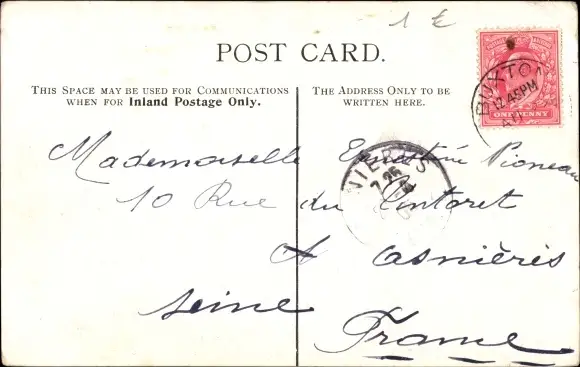 1 €
POST CARD.
THIS SPACE MAY BE USED FOR COMMUNICATIONS
WHEN FOR Inland Postage Only.
THE ADDRESS ONLY TO BE
WRITTEN HERE.
BUXTON
12.45PM
ONE PENNY
Mademoiselle Ernestine Pioneau
10 Rue du Tintoret
A Asnières
Seine
France
NIERES
7 25